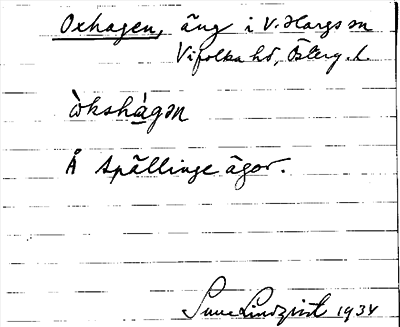 Oxhagen, äng i V. Hargs sn
Vifolka hd, Österg. l.
òkshàgən
Å Spällinge ägor.
Sune Lindqvist 1934